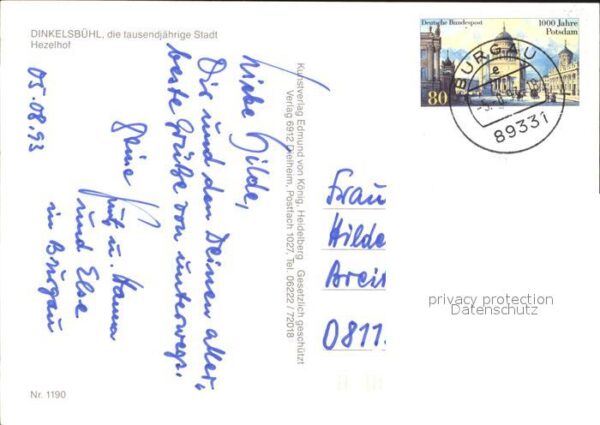 DINKELSBÜHL, die tausendjährige Stadt
Hezelhof
05.08.93
Liebe Hilde,
Dir und den Deinen aller-
beste Grüße von unterwegs.
Deine
u. Hanna
und Else
in Burgau
Kunstverlag Edmund von König, Heidelberg Gesetzlich geschützt
Verlag 6912 Dielheim, Postfach 1027, Tel. 06222 / 72018
Deutsche Bundespost
1000 Jahre
Potsdam
80
BURGAU
e
89331
Frau
Hilde
0811
privacy protection
Datenschutz
Nr. 1190